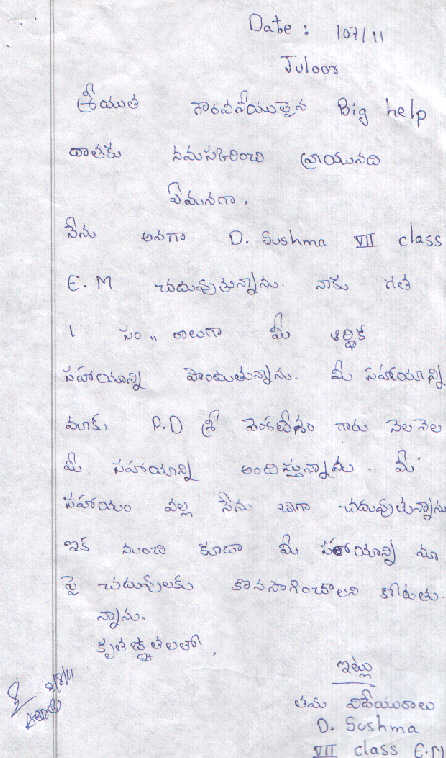 Date : 1/07/11
Juloor
శ్రీయుత గౌరవనీయులైన Big help
దాతకు నమస్కరించి వ్రాయునది
ఏమనగా.
నేను అనగా D. Sushma VII class
E.M చదువుతున్నాను. నాకు గత
1 సం,, రాలుగా మీ ఆర్థిక
సహాయాన్ని పొందుతున్నాను. మీ సహాయాన్ని
మాకు P.D శ్రీ వెంకటేశం గారు నెల నెల
మీ సహాయాన్ని అందిస్తున్నారు. మీ
సహాయం వల్ల నేను బాగా చదువుతున్నాను
ఇక నుంచి కూడా మీ సహాయాన్ని నా
పై చదువులకు కొనసాగించాలని కోరుతు-
న్నాను.
కృతజ్ఞతలతో,
ఇట్లు
తమ విదేయురాలు
D. Sushma
VII class E.M